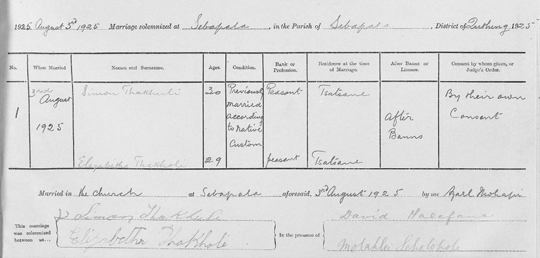 1925 August 3rd 1925 Marriage solemnized at Sebapala in the Parish of Sebapala District of Quthing 1925
No. When Married Names and Surnames. Ages. Condition. Rank or Profession. Residence at the time of Marriage. After Banns or Licence. Consent by whom given, or Judge's Order.
1 3rd August 1925 Simon Thakhuli 30 Previously married according to Native Custom Peasant Tsatsane After Banns By their own Consent
Elizabetha Thakhole 29 peasant Tsatsane
Married in the church at Sebapala aforesaid, 3rd August 1925 by me
This marriage was solemnized between us
Simon Thakhuli
Elizabetha Thakhole
In the presence of
David